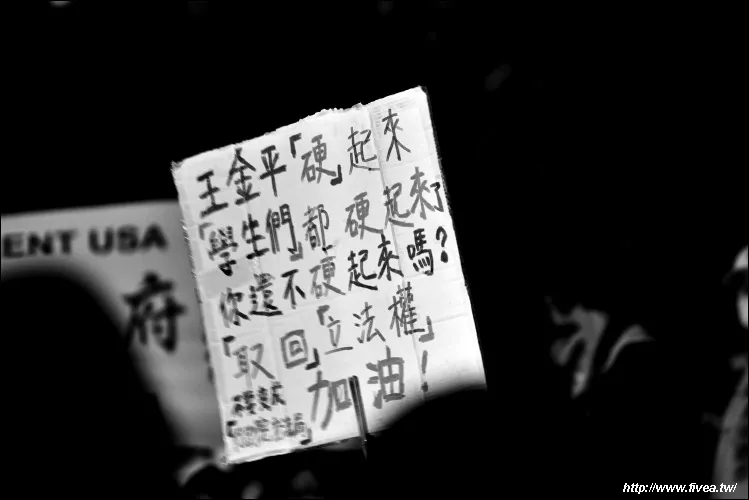 王金平「硬」起來
「學生們」都硬起來了
你還不硬起來嗎？
「取回」「立法權」
加油！
不要變成
ENT USA
府
http://www.fivea.tw/